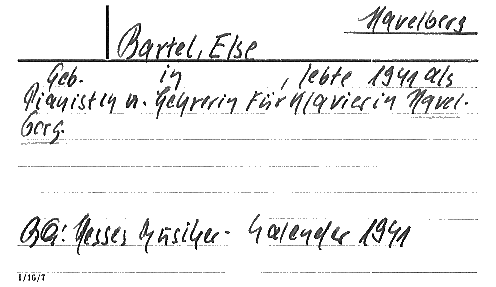 Havelberg
Bartel, Else
Geb. in , lebte 1941 als
Pianistin u. Lehrerin für Klavier in Havel-
berg.
BQ: Hesses Musiker-Kalender 1941
1/16/7